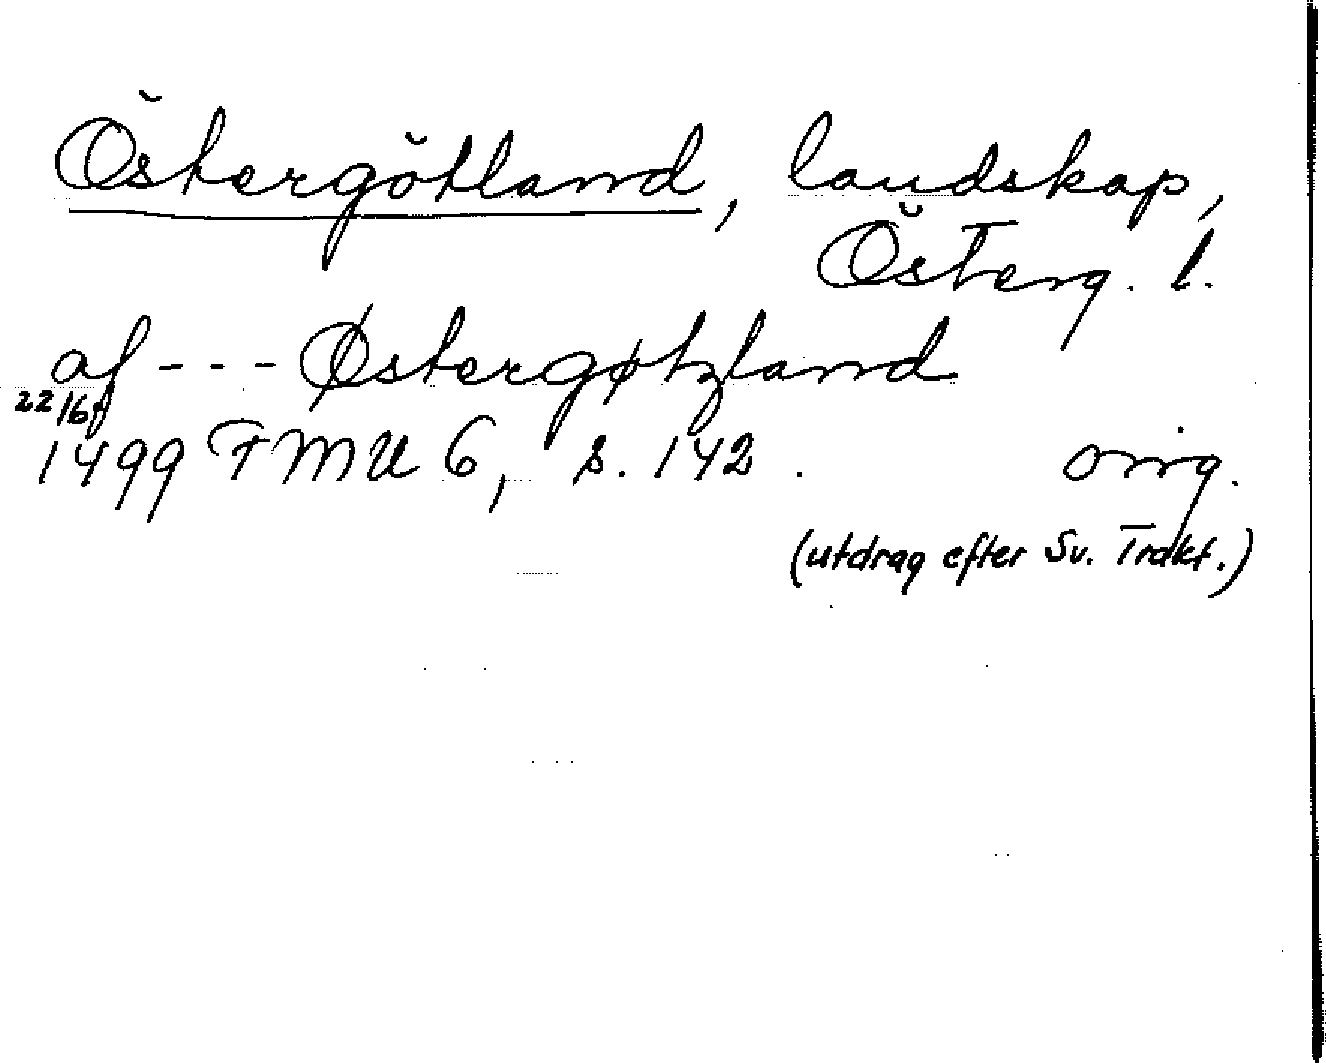 Östergötland, landskap,
Österg. l.
af --- Østergøtzland
22/6
1499 FMU 6, s. 142. orig.
(utdrag efter Sv. Trakt.)